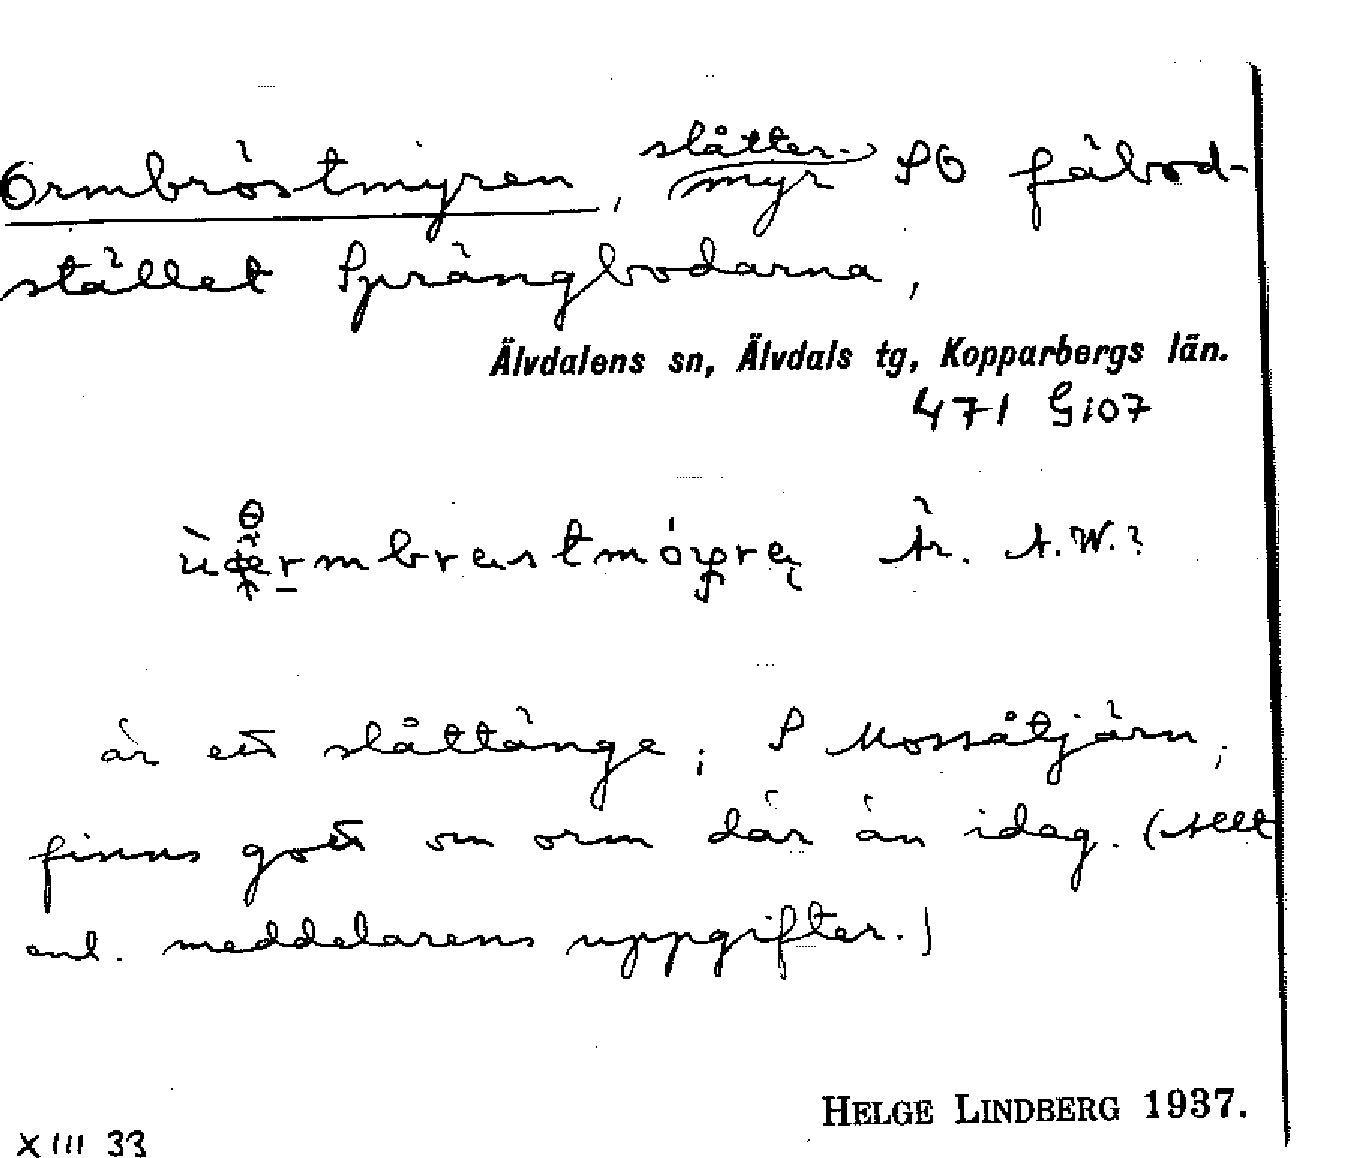 Ormbröstmyren, slåttermyr SO fäbod-
stället Sprängbodarna,
Älvdalens sn, Älvdals tg, Kopparbergs län.
471 G107
Är. A.W.?
är ett slåttänge; S Mossåtjärn,
finns gott om orm där än idag. (Allt
enl. meddelarens uppgifter.)
HELGE LINDBERG 1937.
XIII 33